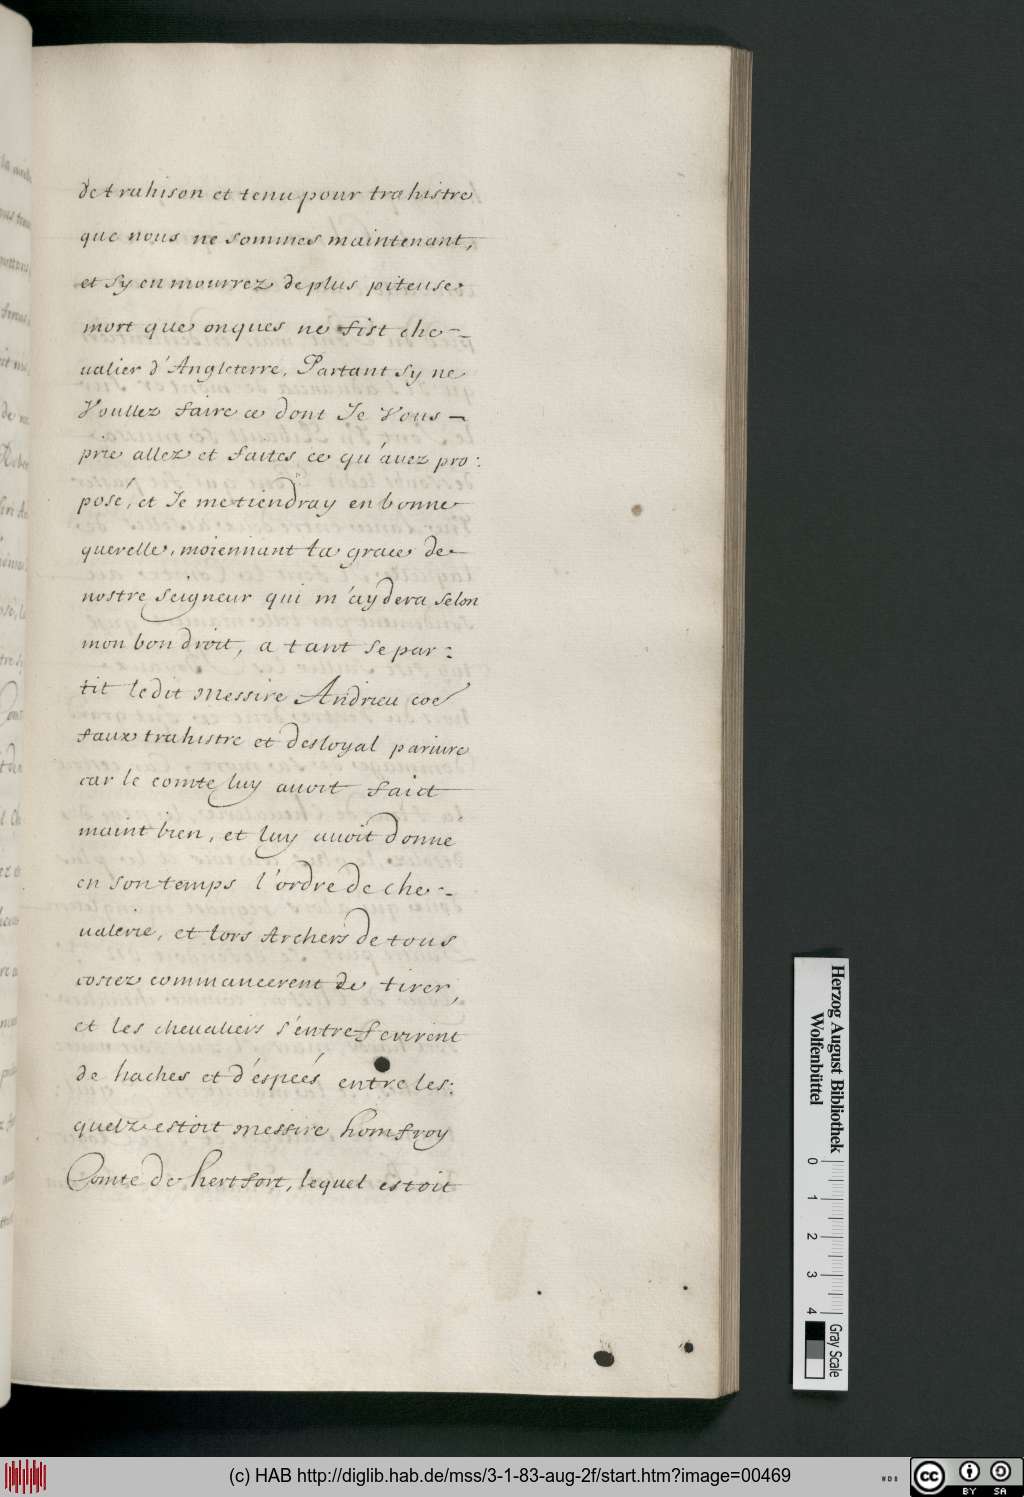 de trahison et tenu pour trahistre
que nous ne sommes maintenant,
et sy en mourrez de plus piteuse
mort que onques ne fist che-
ualier d'Angleterre, Partant sy ne
Voullez faire ce dont Je Vous -
prie allez et faites ce qu'auez pro:
posé, et Je me tiendray en bonne
querelle, moiennant la grace de
nostre Seigneur qui m'aydera selon
mon bon droit, a tant se par:
tit ledit Messire Andrieu coe
faux trahistre et desloyal pariure
car le comte luy auoit faict
maint bien, et luy auoit donne
en son temps l'ordre de che-
ualerie, et lors Archers de tous
costez commancerent de tirer,
et les cheualiers s'entreferirent
de haches et d'espeés entre les:
quelz estoit messire homfroy
Comte de hertfort, lequel estoit
Herzog August Bibliothek
Wolfenbüttel
0 1 2 3 4
Gray Scale
(c) HAB http://diglib.hab.de/mss/3-1-83-aug-2f/start.htm?image=00469
cc BY SA